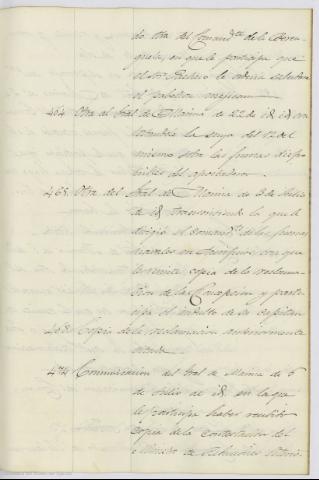 do otra del Comand.te de la Beren-
guela, en que le participa que
el Sr. Pacheco le ordena saludara
el pabellon mejicano
464. Otra al Gral de Marina de 22 de id. id en
contestacion la suya del 12 del
mismo sobre las fuerzas dispo-
nibles del apostadero
465. Otra del Gral de Marina de 3 de Julio
de id. transcribiendo la que le
dirigió el Comand.te de las fuerzas
navales en con que
le remite copia de la reclama-
cion de la Concepcion y parti-
cipa el indulto de su Capitan
Copia de la reclamacion anteriormente
citada
Comunicacion del Gral de Marina de 6
de Julio de id. en la que
le participa haber recibido
copia de la contestacion del
Ministro de Relaciones